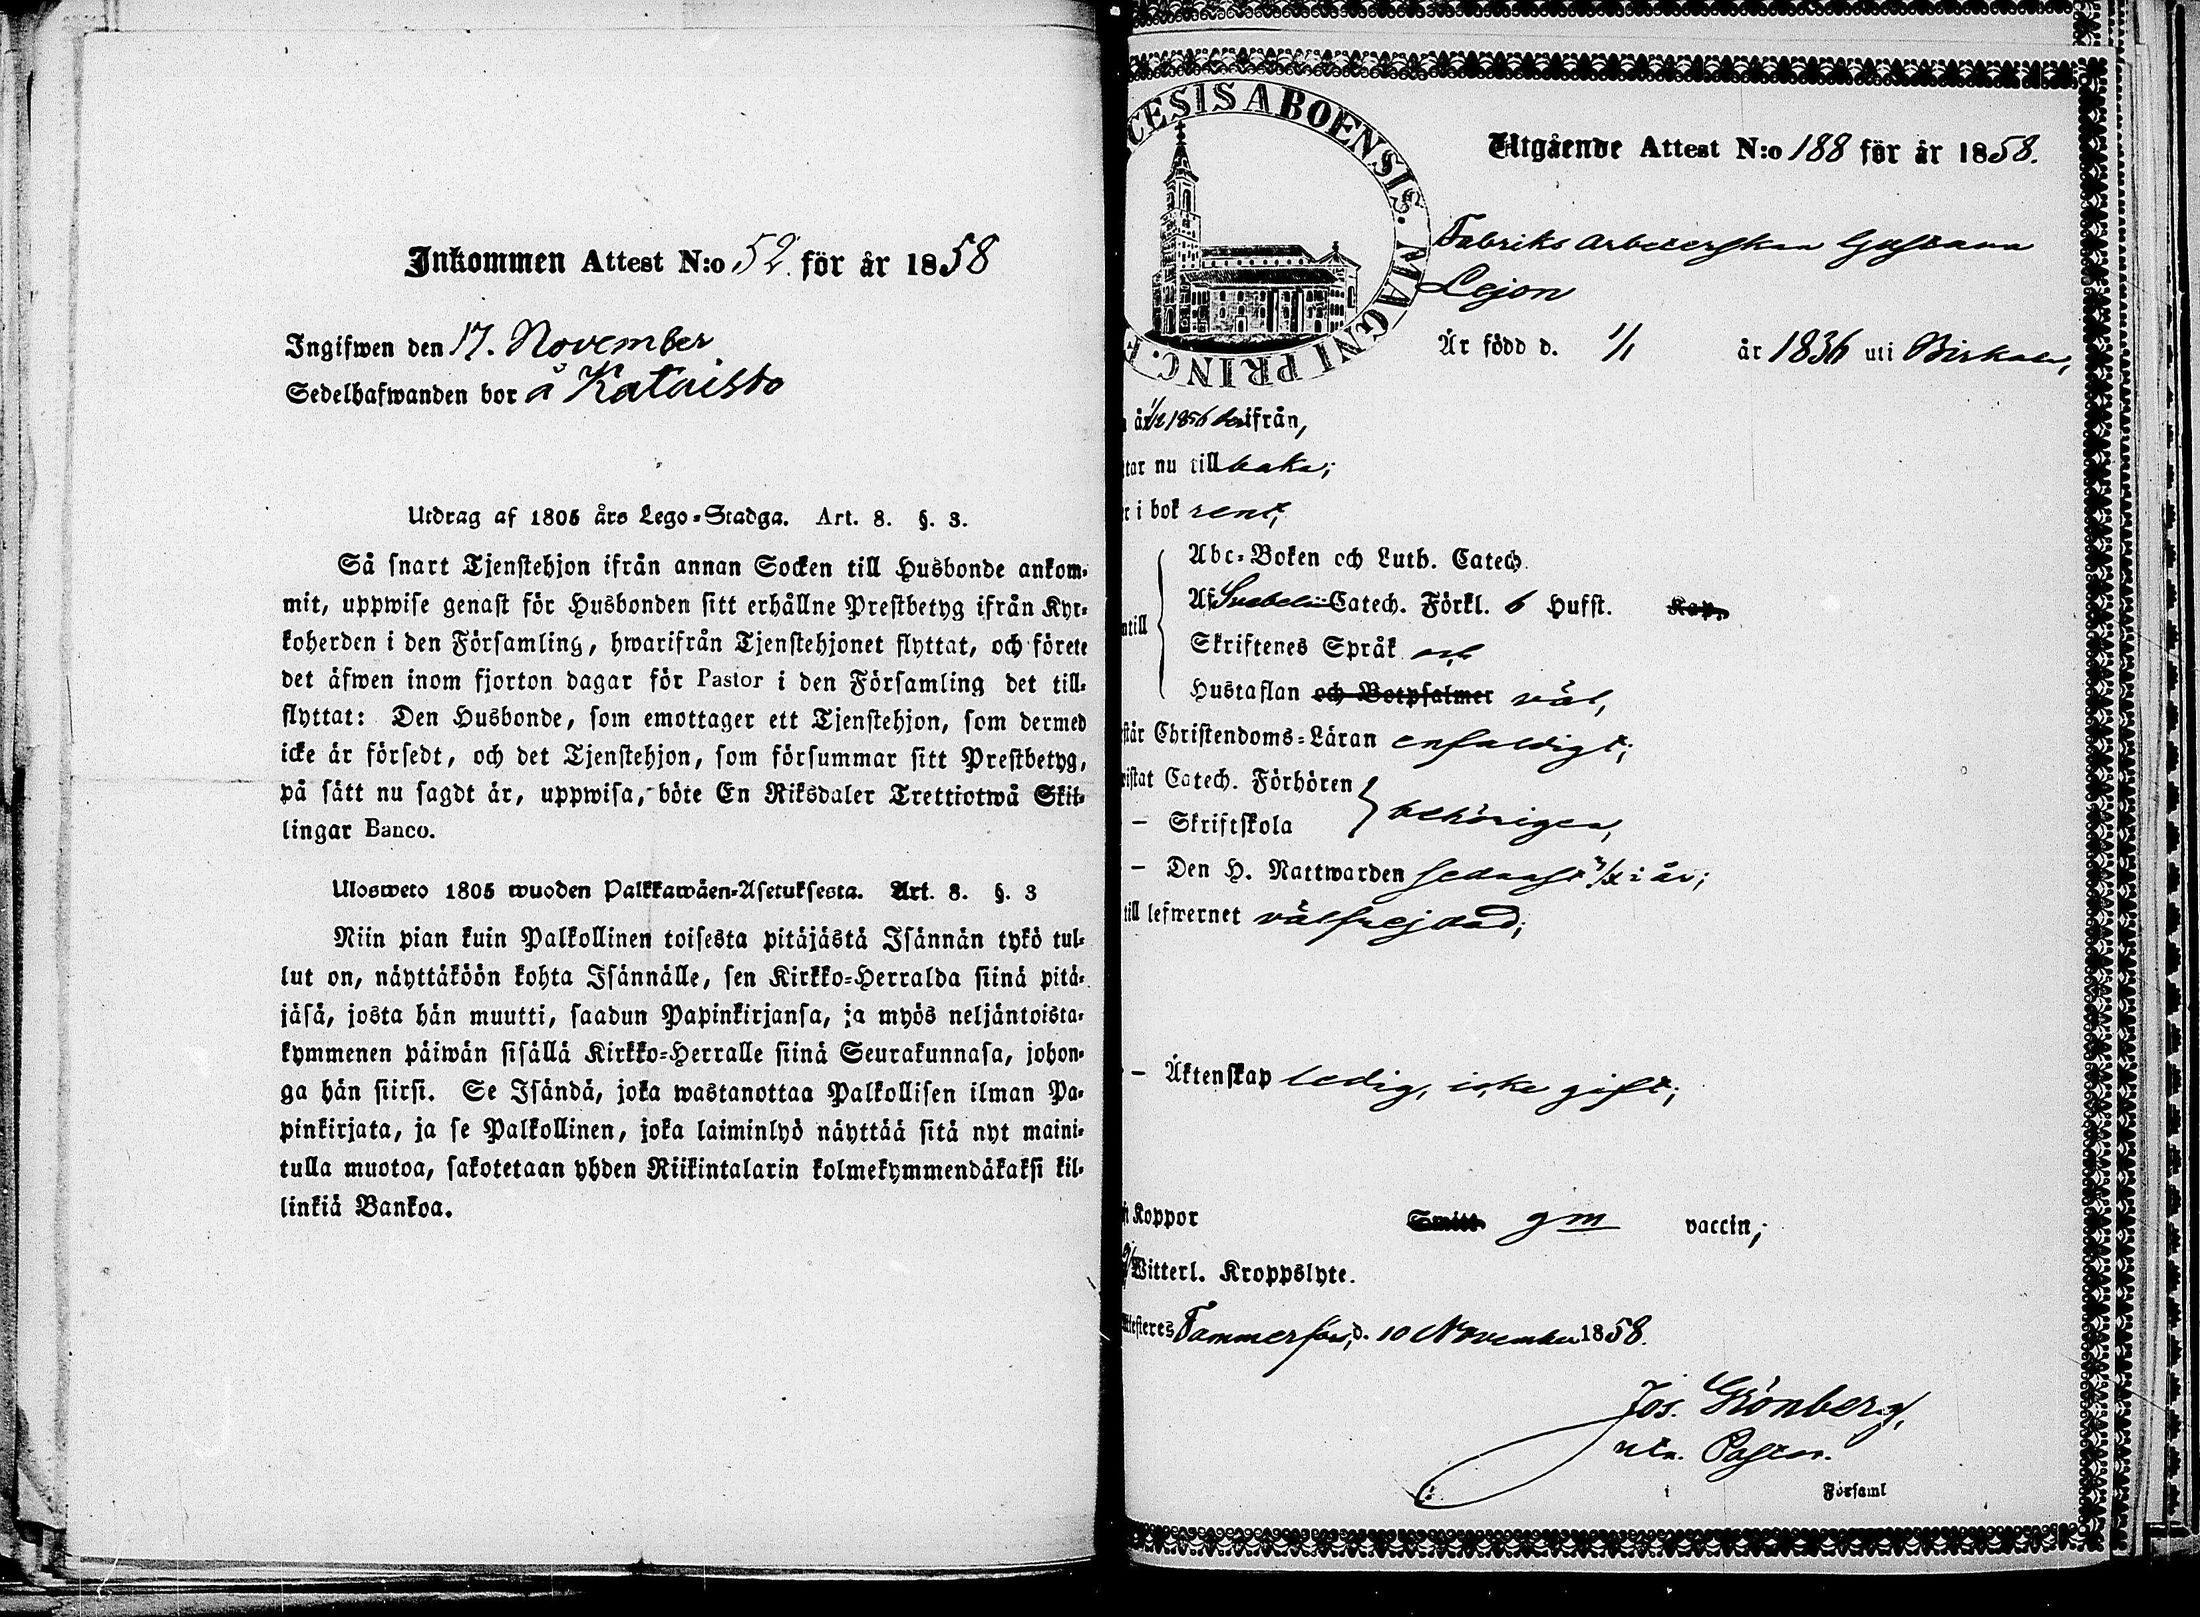 Inkommen Attest N:o 52. för år 1858
Ingifwen den 17. November
Sedelhafwanden bor å Kataisto
Utdrag af 1805 års Lego-Stadga. Art. 8. §. 3.
Så snart Tjenstehjon ifrån annan Socken till Husbonde ankom-
mit, uppwise genast för Husbonden sitt erhållne Prestbetyg ifrån Kyr-
koherden i den Församling, hwarifrån Tjenstehjonet flyttat, och förete
det äfwen inom fjorton dagar för Pastor i den Församling det till-
flyttat: Den Husbonde, som emottager ett Tjenstehjon, som dermed
icke är försedt, och det Tjenstehjon, som försummar sitt Prestbetyg,
på sätt nu sagdt är, uppwisa, böte En Riksdaler Trettiotwå Skil-
lingar Banco.
Ulosweto 1805 wuoden Palkkawäen-Asetuksesta. Art. 8. §. 3
Niin pian kuin Palkollinen toisesta pitäjästä Isännän tykö tul-
lut on, näyttäköön kohta Isännälle, sen Kirkko-Herralda siinä pitä-
jäsä, josta hän muutti, saadun Papinkirjansa, ja myös neljäntoista-
kymmenen päiwän sisällä Kirkko-Herralle siinä Seurakunnasa, johon-
ga hän siirsi. Se Isändä, joka wastanottaa Palkollisen ilman Pa-
pinkirjata, ja se Palkollinen, joka laiminlyö näyttää sitä nyt maini-
tulla muotoa, sakotetaan yhden Riikintalarin kolmekymmendäkaksi kil-
linkiä Bankoa.
CESIS ABOENSIS. MAGNI PRINC. F
Utgående Attest N:o 188 för år 1858.
Fabriks Arbeterskan Gustava
Lejon
Är född d. 1/1 år 1836 uti Birkala,
år 1/12 1856 derifrån,
tar nu tillbaka;
i bok rent,
Abc-Boken och Luth. Catech.
Af Svebelii Catech. Förkl. 6 Hufst. Kap.
Skriftenes Språk och
Hustaflan och Botpsalmer väl,
står Christendoms-Läran enfaldigt;
istat Catech. Förhören
— Skriftskola behörigen,
— Den H. Nattwarden sedanst 3/X i år;
till lefwernet välfrejdad;
— Äktenskap ledig, icke gift;
Koppor Smitt gm vaccin;
Witterl. Kroppslyte.
Attesteres Tammerfors, d. 10 November 1858.
Jos. Grönberg,
Pastor.
i Församl